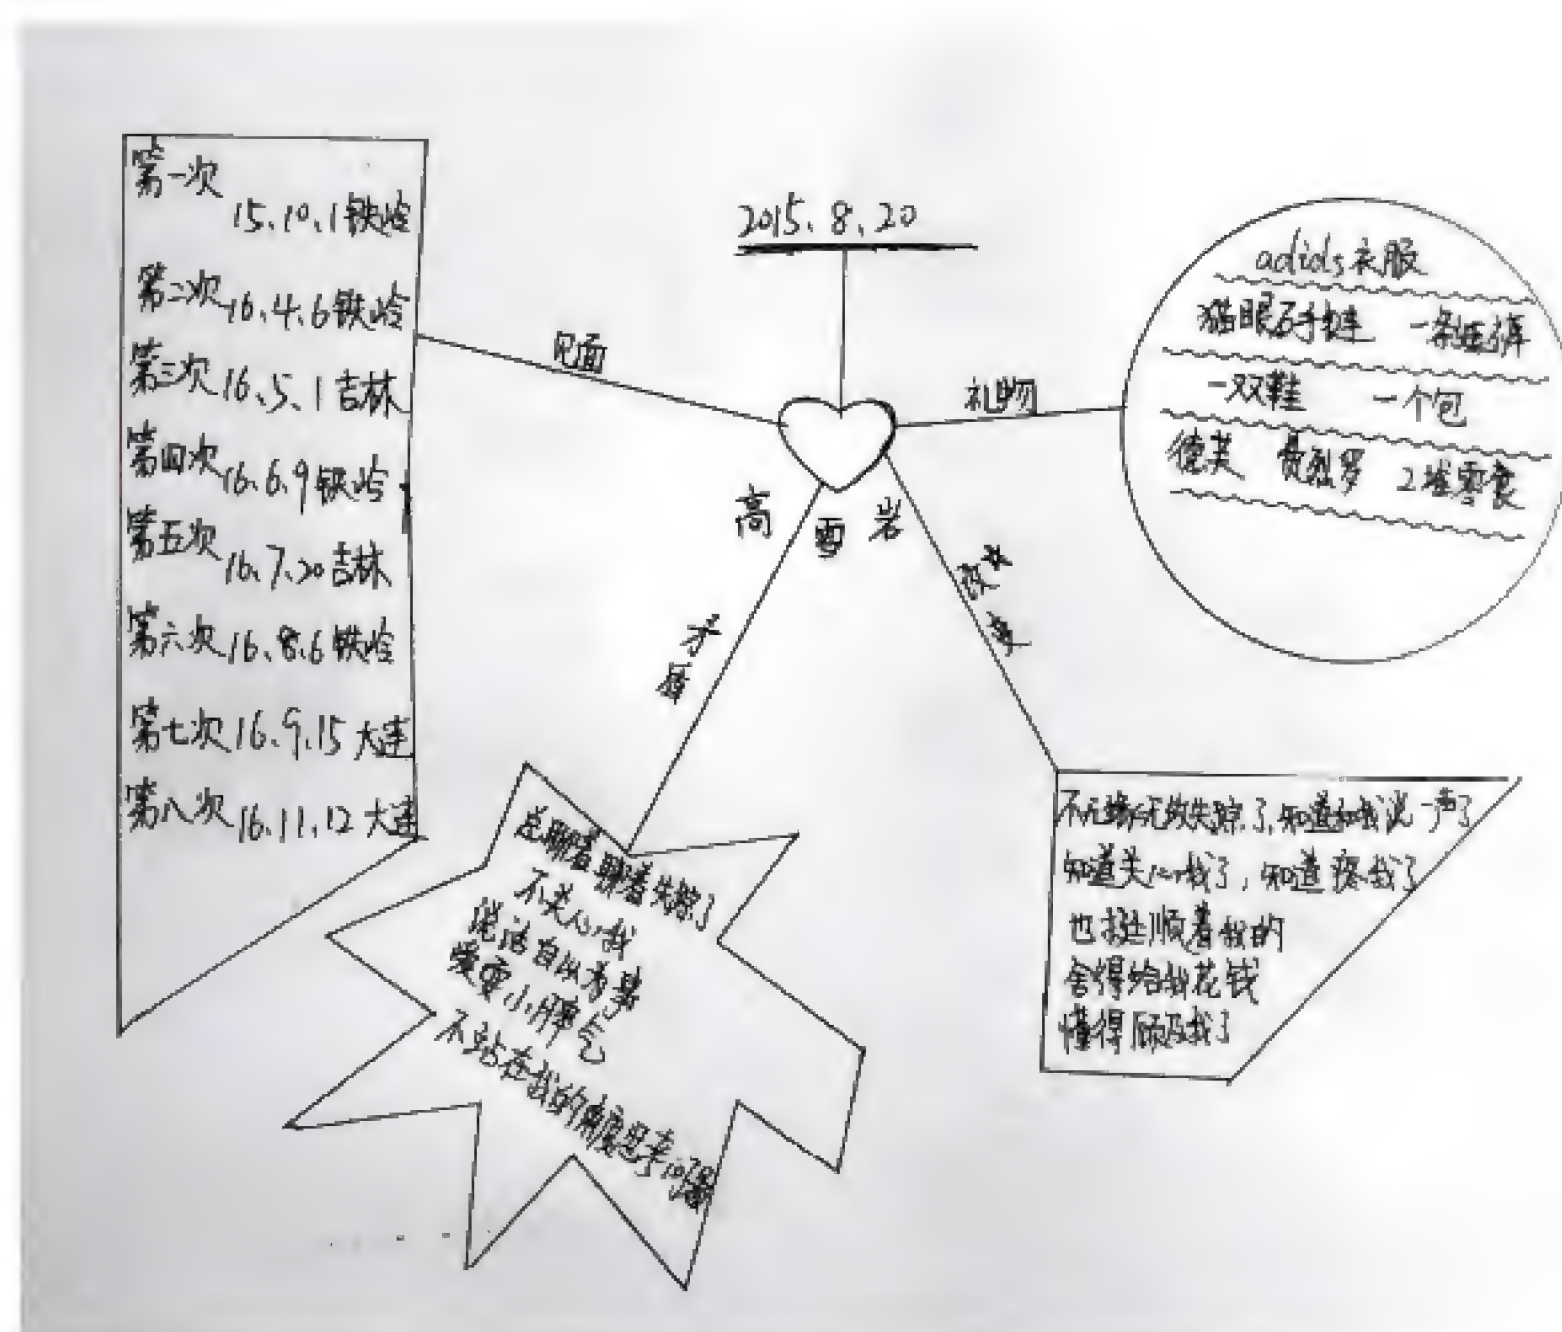 2015.8.20
见面
第一次
15.10.1铁岭
第二次16.4.6铁岭
第三次16.5.1吉林
第四次16.6.9铁岭
第五次
16.7.20吉林
第六次16.8.6铁岭
第七次16.9.15大连
第八次16.11.12大连
礼物
adids衣服
猫眼石手链 一条连裤
一双鞋 一个包
德芙 费烈罗 2堆零食
高雪岩
矛盾
总聊着聊着失踪了
不关心我
说话自以为是
爱耍小脾气
不站在我的角度思考问题
改变
不无缘无故失踪了,知道和我说一声了
知道关心我了,知道疼我了
也挺顺着我的
舍得给我花钱
懂得顾及我了